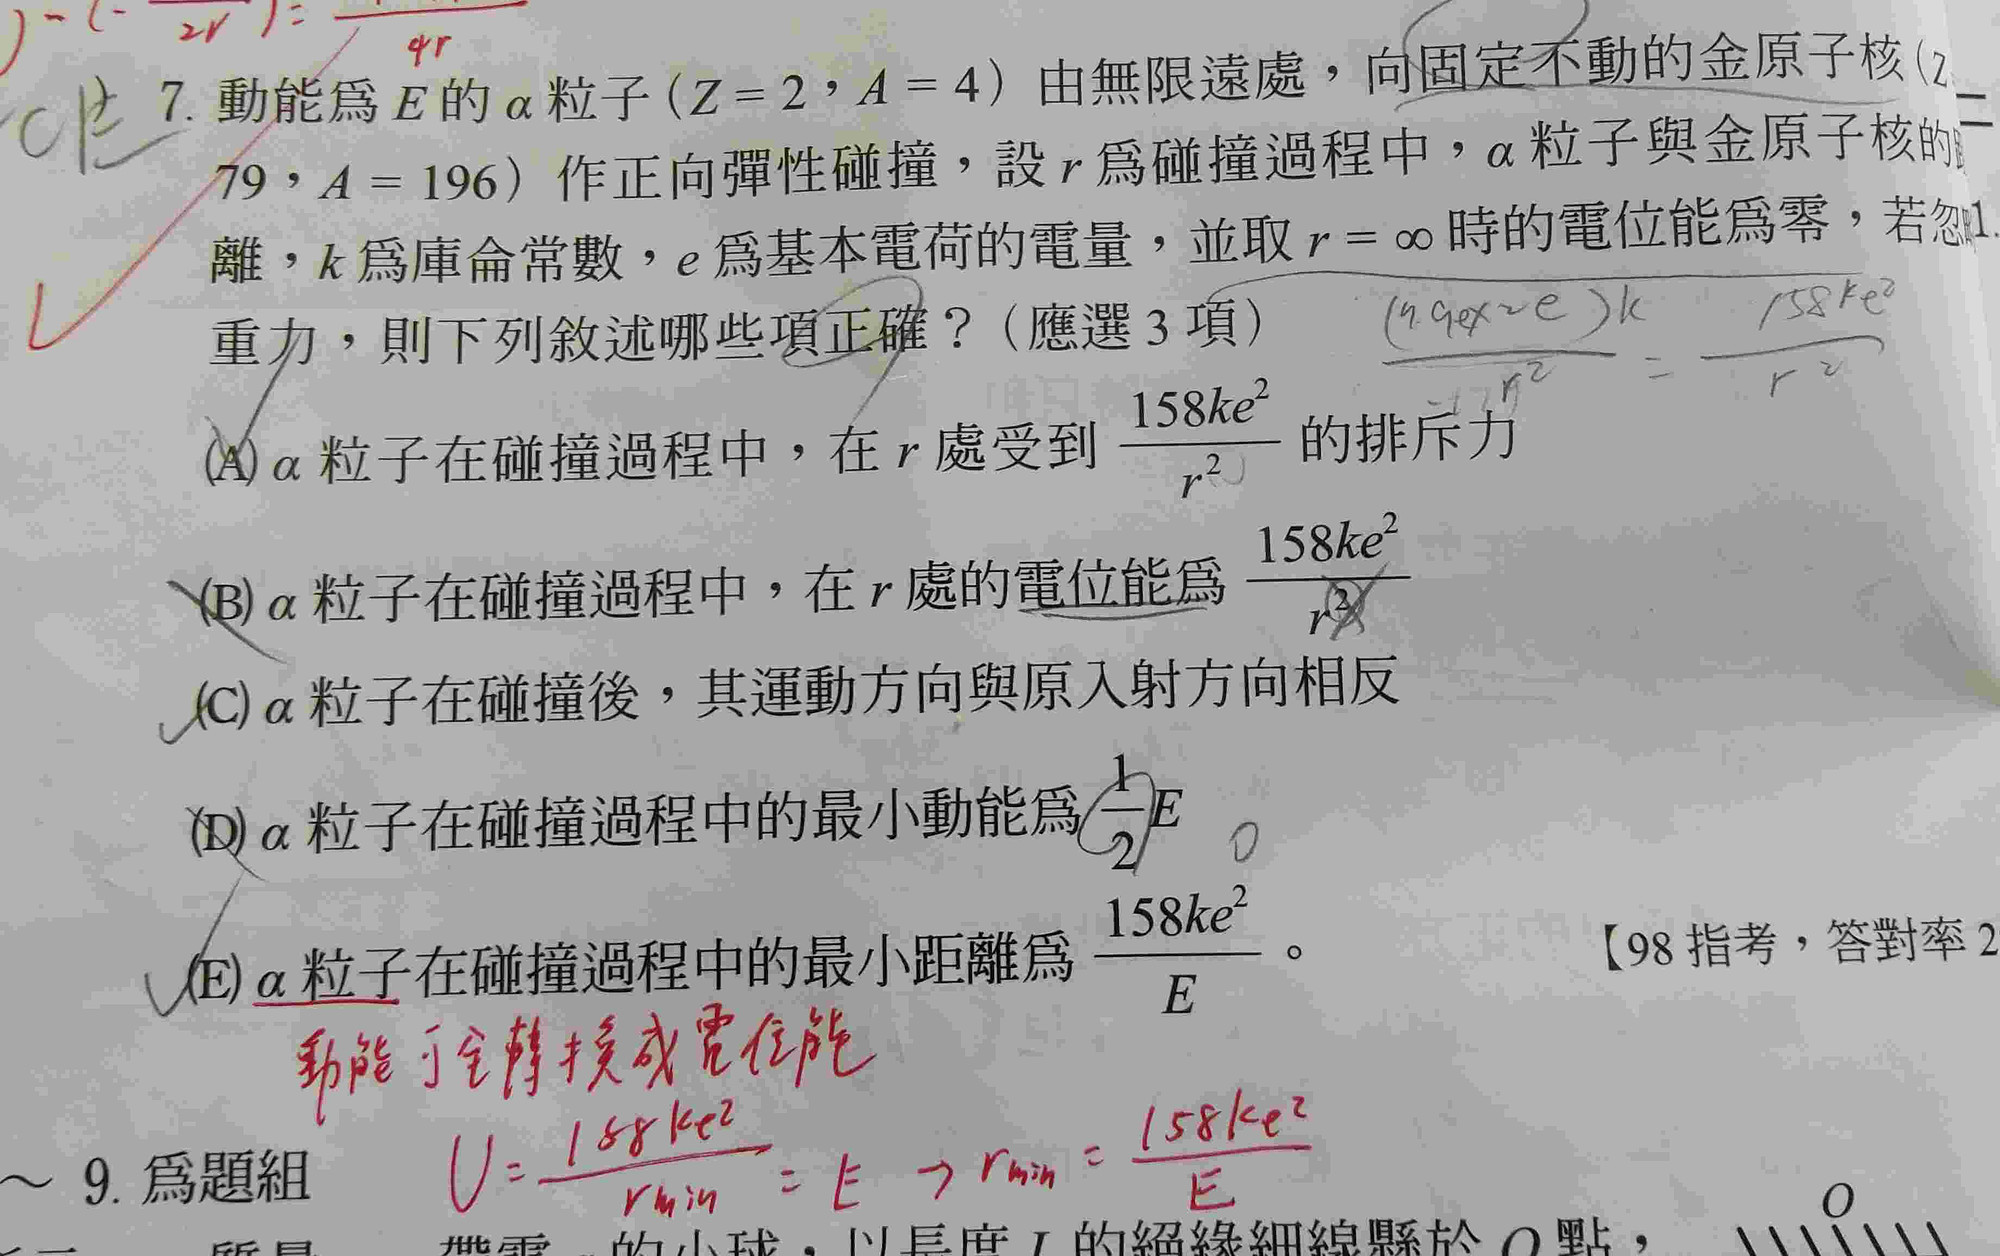 2r
4r
7. 動能爲 E 的 α 粒子（Z = 2，A = 4）由無限遠處，向固定不動的金原子核（Z =
79，A = 196）作正向彈性碰撞，設 r 爲碰撞過程中，α 粒子與金原子核的
離，k 爲庫侖常數，e 爲基本電荷的電量，並取 r = ∞ 時的電位能爲零，若忽
重力，則下列敘述哪些項正確？（應選 3 項）
= 158ke²/r²
(A) α 粒子在碰撞過程中，在 r 處受到 158ke²/r² 的排斥力
(B) α 粒子在碰撞過程中，在 r 處的電位能爲 158ke²/r²
(C) α 粒子在碰撞後，其運動方向與原入射方向相反
(D) α 粒子在碰撞過程中的最小動能爲 1/2 E
0
(E) α 粒子在碰撞過程中的最小距離爲 158ke²/E。
【98 指考，答對率 2
動能完全轉換成電位能
U = 158ke²/rmin = E → rmin = 158ke²/E
～ 9. 爲題組
O
帶電 的小球，以長度 L 的絕緣細線懸於 O 點，